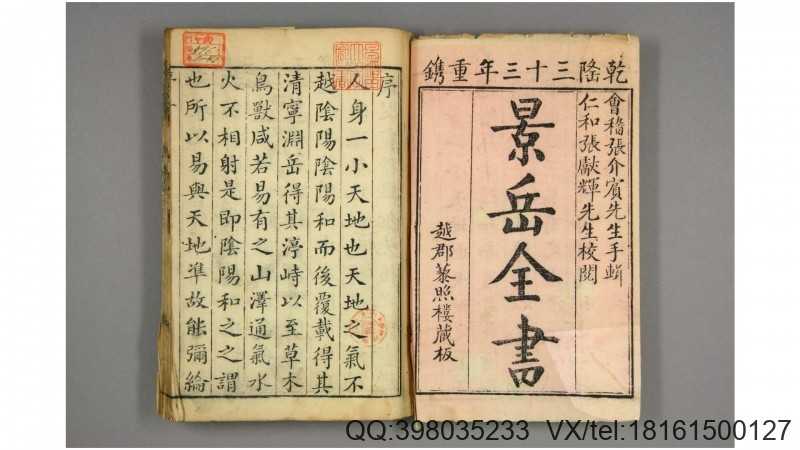 乾隆三十三年重鐫
會稽張介賓先生手輯
仁和張獻輝先生校閱
景岳全書
越郡藜照樓藏板
序
人身一小天地也天地之氣不
越陰陽陰陽和而後覆載得其
清寧淵岳得其渟峙以至草木
鳥獸咸若易有之山澤通氣水
火不相射是即陰陽和之之謂
也所以易與天地準故能彌綸
QQ:398035233 VX/tel:18161500127